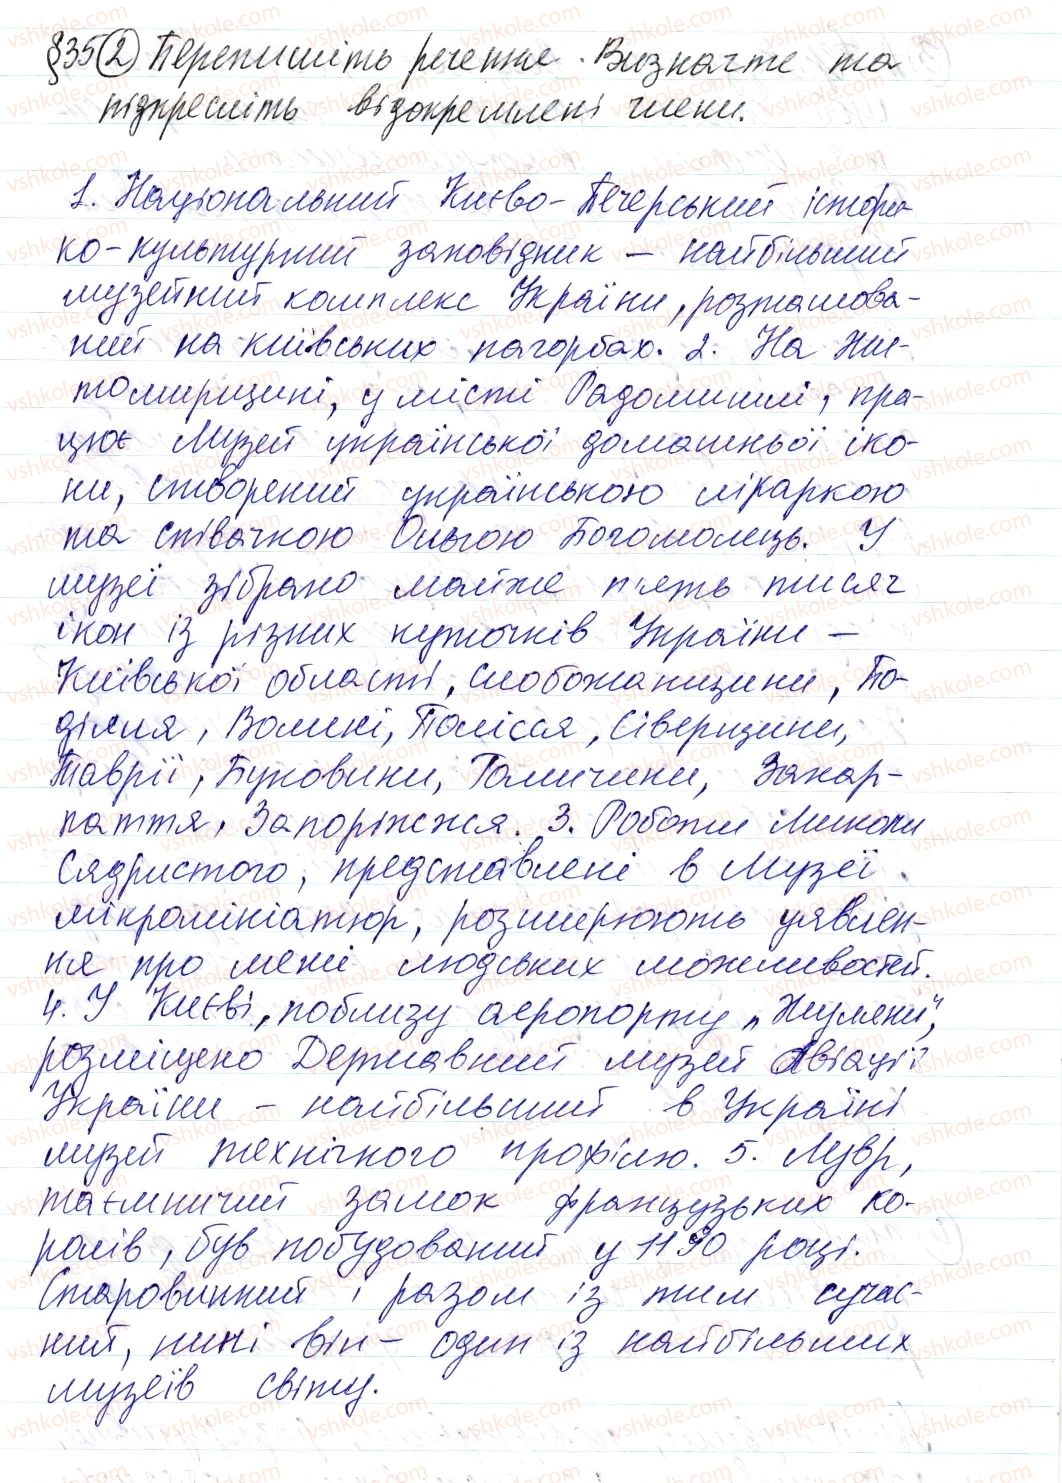 §35 2 Перепишіть речення. Визначте та
підкресліть відокремлені члени.
1. Національний Києво-Печерський істори-
ко-культурний заповідник – найбільший
музейний комплекс України, розташова-
ний на київських пагорбах. 2. На Жи-
томирщині, у місті Радомишлі, пра-
цює Музей української домашньої іко-
ни, створений українською лікаркою
та співачкою Ольгою Богомолець. У
музеї зібрано майже п'ять тисяч
ікон із різних куточків України –
Київської області, Слобожанщини, По-
ділля, Волині, Полісся, Сіверщини,
Таврії, Буковини, Галичини, Закар-
паття, Запоріжжя. 3. Роботи Миколи
Сядристого, представлені в Музеї
мікромініатюр, розширюють уявлен-
ня про межі людських можливостей.
4. У Києві, поблизу аеропорту „Жуляни",
розміщено Державний музей авіації
України – найбільший в Україні
музей технічного профілю. 5. Лувр,
таємничий замок французьких ко-
ролів, був побудований у 1190 році.
Старовинний і разом із тим сучас-
ний, нині він – один із найбільших
музеїв світу.